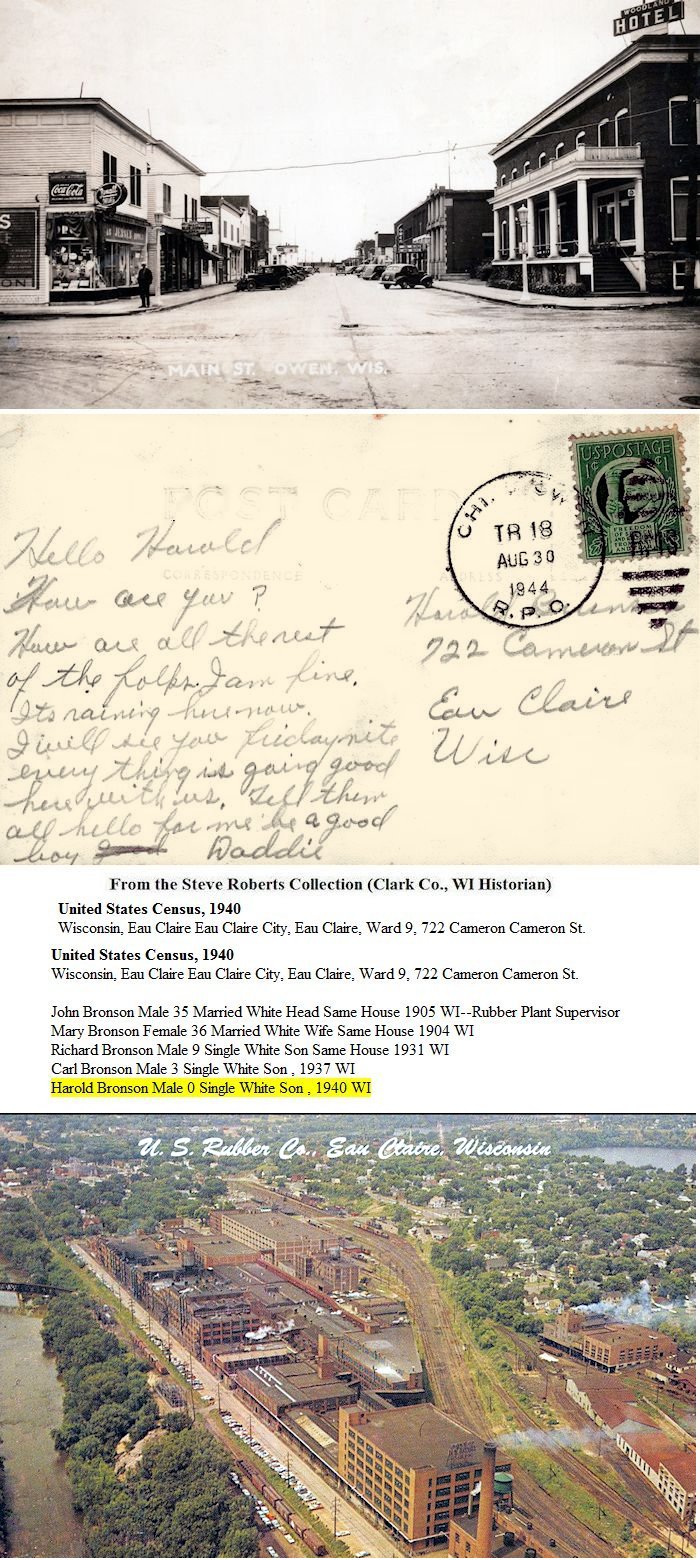 WOODLAND
HOTEL
Coca-Cola
MAIN ST. OWEN, WIS.
POST CARD
CORRESPONDENCE
ADDRESS
U.S. POSTAGE
1¢ 1¢
FREEDOM
CHI.
TR 18
AUG 30
1944
R.P.O.
Hello Harold
How are you?
How are all the rest
of the folks. I am fine.
Its raining here now.
I will see you friday nite
every thing is going good
here with us. Tell them
all hello for me be a good
boy Daddie
Harold
722 Cameron St
Eau Claire
Wisc
From the Steve Roberts Collection (Clark Co., WI Historian)
United States Census, 1940
Wisconsin, Eau Claire Eau Claire City, Eau Claire, Ward 9, 722 Cameron Cameron St.
United States Census, 1940
Wisconsin, Eau Claire Eau Claire City, Eau Claire, Ward 9, 722 Cameron Cameron St.
John Bronson Male 35 Married White Head Same House 1905 WI--Rubber Plant Supervisor
Mary Bronson Female 36 Married White Wife Same House 1904 WI
Richard Bronson Male 9 Single White Son Same House 1931 WI
Carl Bronson Male 3 Single White Son , 1937 WI
Harold Bronson Male 0 Single White Son , 1940 WI
U. S. Rubber Co., Eau Claire, Wisconsin